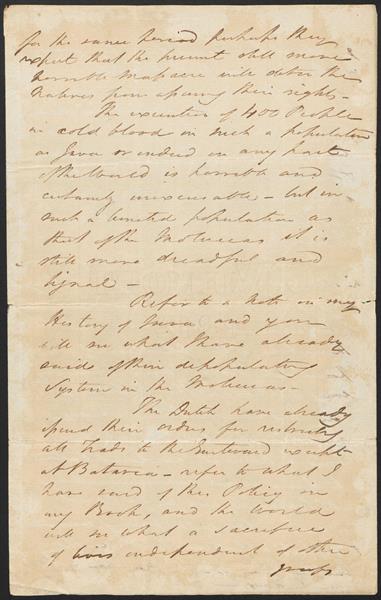 for the same period perhaps they
expect that the present still more
horrible Massacre will deter the
Natives from a their rights –
The execution of 400 People
in cold blood in such a population
as Java or indeed in any part
of the World is horrible and
certainly inexcusable – but in
such a limited population as
that of the Moluccas it is
still more dreadful and
signal –
Refer to a Note in my
History of Java and you
will see what I have already
said of their depopulating
System in the Moluccas –
The Dutch have already
issued their orders for restricting
all Trade to the Eastward except
at Batavia – refer to what I
have said of this Policy in
my Book, and the World
will see what a sacrifice
of lives independent of other